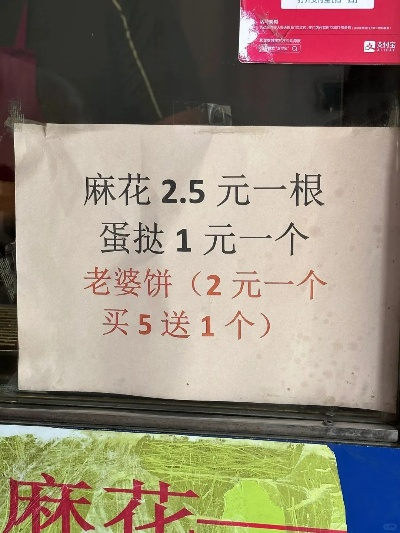 支付宝
麻花 2.5 元一根
蛋挞 1 元一个
老婆饼（2 元一个
买 5 送 1 个）
麻花